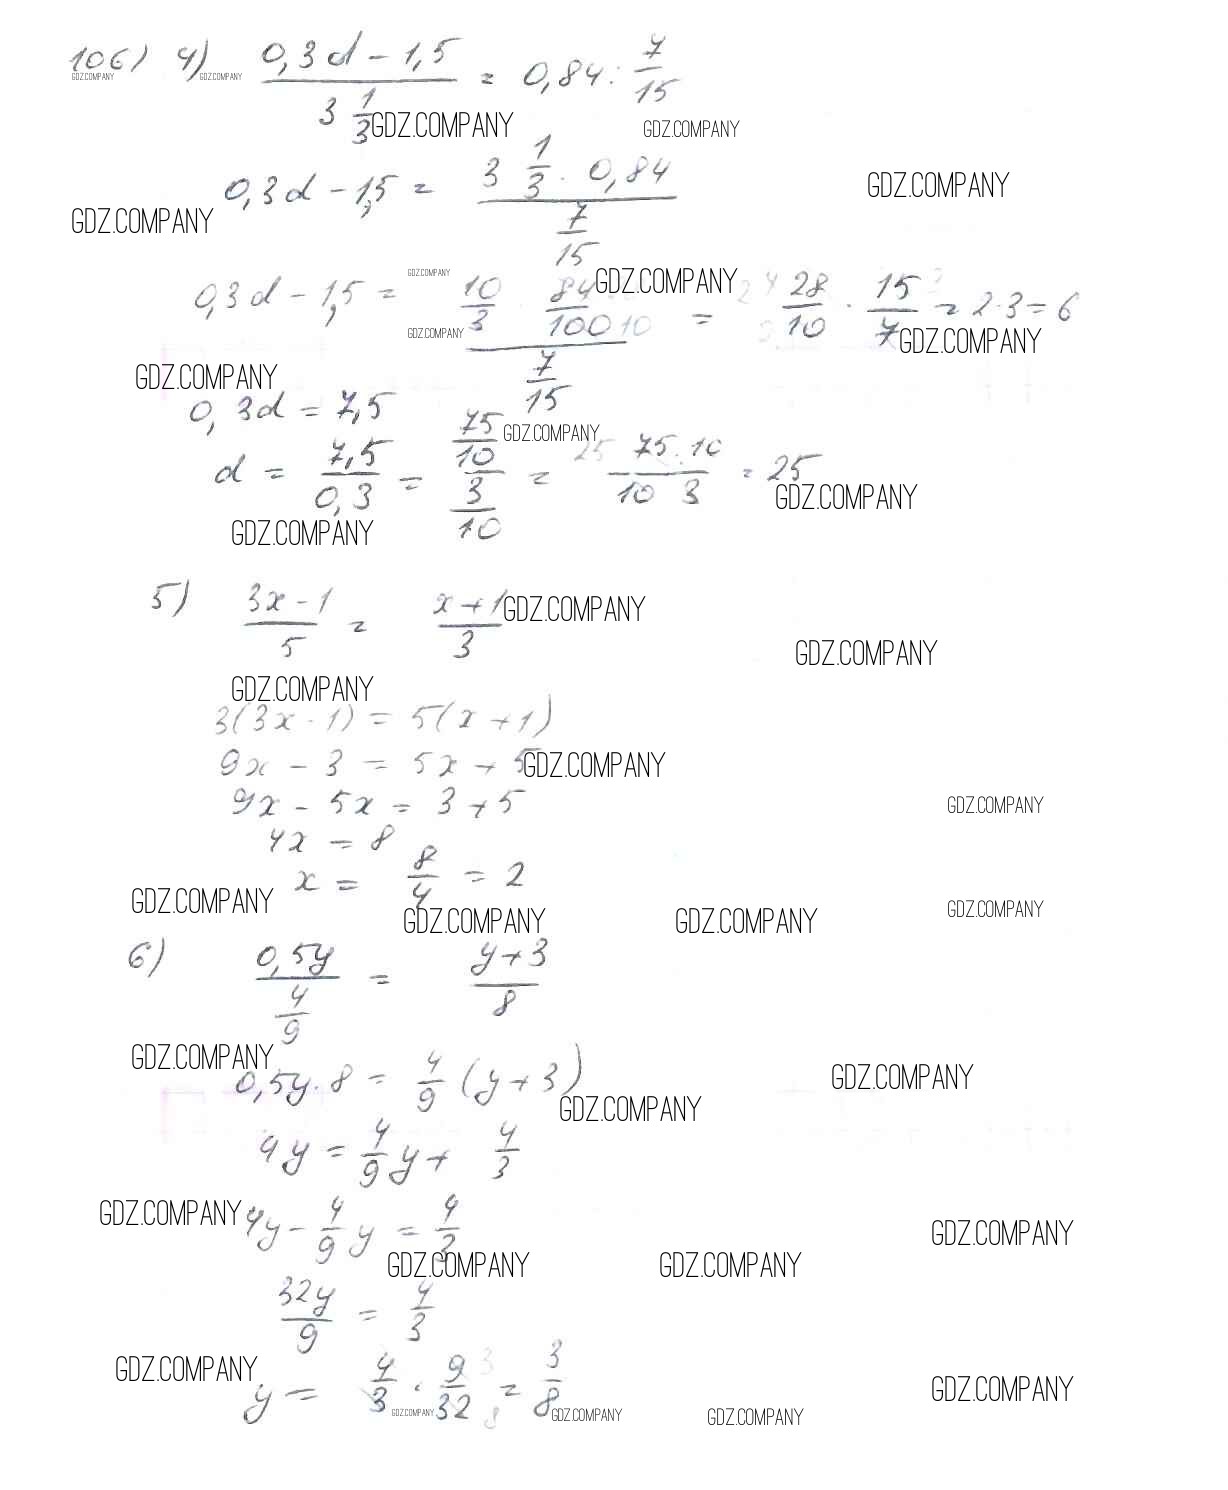 106) 4) (0,3d - 1,5)/(3 1/3) = 0,84 : 7/15
GDZ.COMPANY GDZ.COMPANY
GDZ.COMPANY GDZ.COMPANY
0,3d - 1,5 = (3 1/3 · 0,84)/(7/15)
GDZ.COMPANY
GDZ.COMPANY
GDZ.COMPANY GDZ.COMPANY
0,3d - 1,5 = (10/3 · 84/100 10)/(7/15) = 28/10 · 15/7 = 2·3 = 6
GDZ.COMPANY GDZ.COMPANY
GDZ.COMPANY
0,3d = 7,5
GDZ.COMPANY
d = 7,5/0,3 = (75/10)/(3/10) = 25 (75·10)/(10 3) = 25
GDZ.COMPANY
GDZ.COMPANY
5) (3x - 1)/5 = (x + 1)/3
GDZ.COMPANY
GDZ.COMPANY
GDZ.COMPANY
3(3x - 1) = 5(x + 1)
9x - 3 = 5x + 5
GDZ.COMPANY
9x - 5x = 3 + 5
GDZ.COMPANY
4x = 8
x = 8/4 = 2
GDZ.COMPANY GDZ.COMPANY
GDZ.COMPANY GDZ.COMPANY
6) 0,5y/(4/9) = (y + 3)/8
GDZ.COMPANY GDZ.COMPANY
0,5y·8 = 4/9 (y + 3)
GDZ.COMPANY
4y = 4/9 y + 4/3
GDZ.COMPANY
4y - 4/9 y = 4/3
GDZ.COMPANY
GDZ.COMPANY GDZ.COMPANY
32y/9 = 4/3
GDZ.COMPANY GDZ.COMPANY
y = 4/3 · 9 3/32 8 = 3/8
GDZ.COMPANY GDZ.COMPANY GDZ.COMPANY